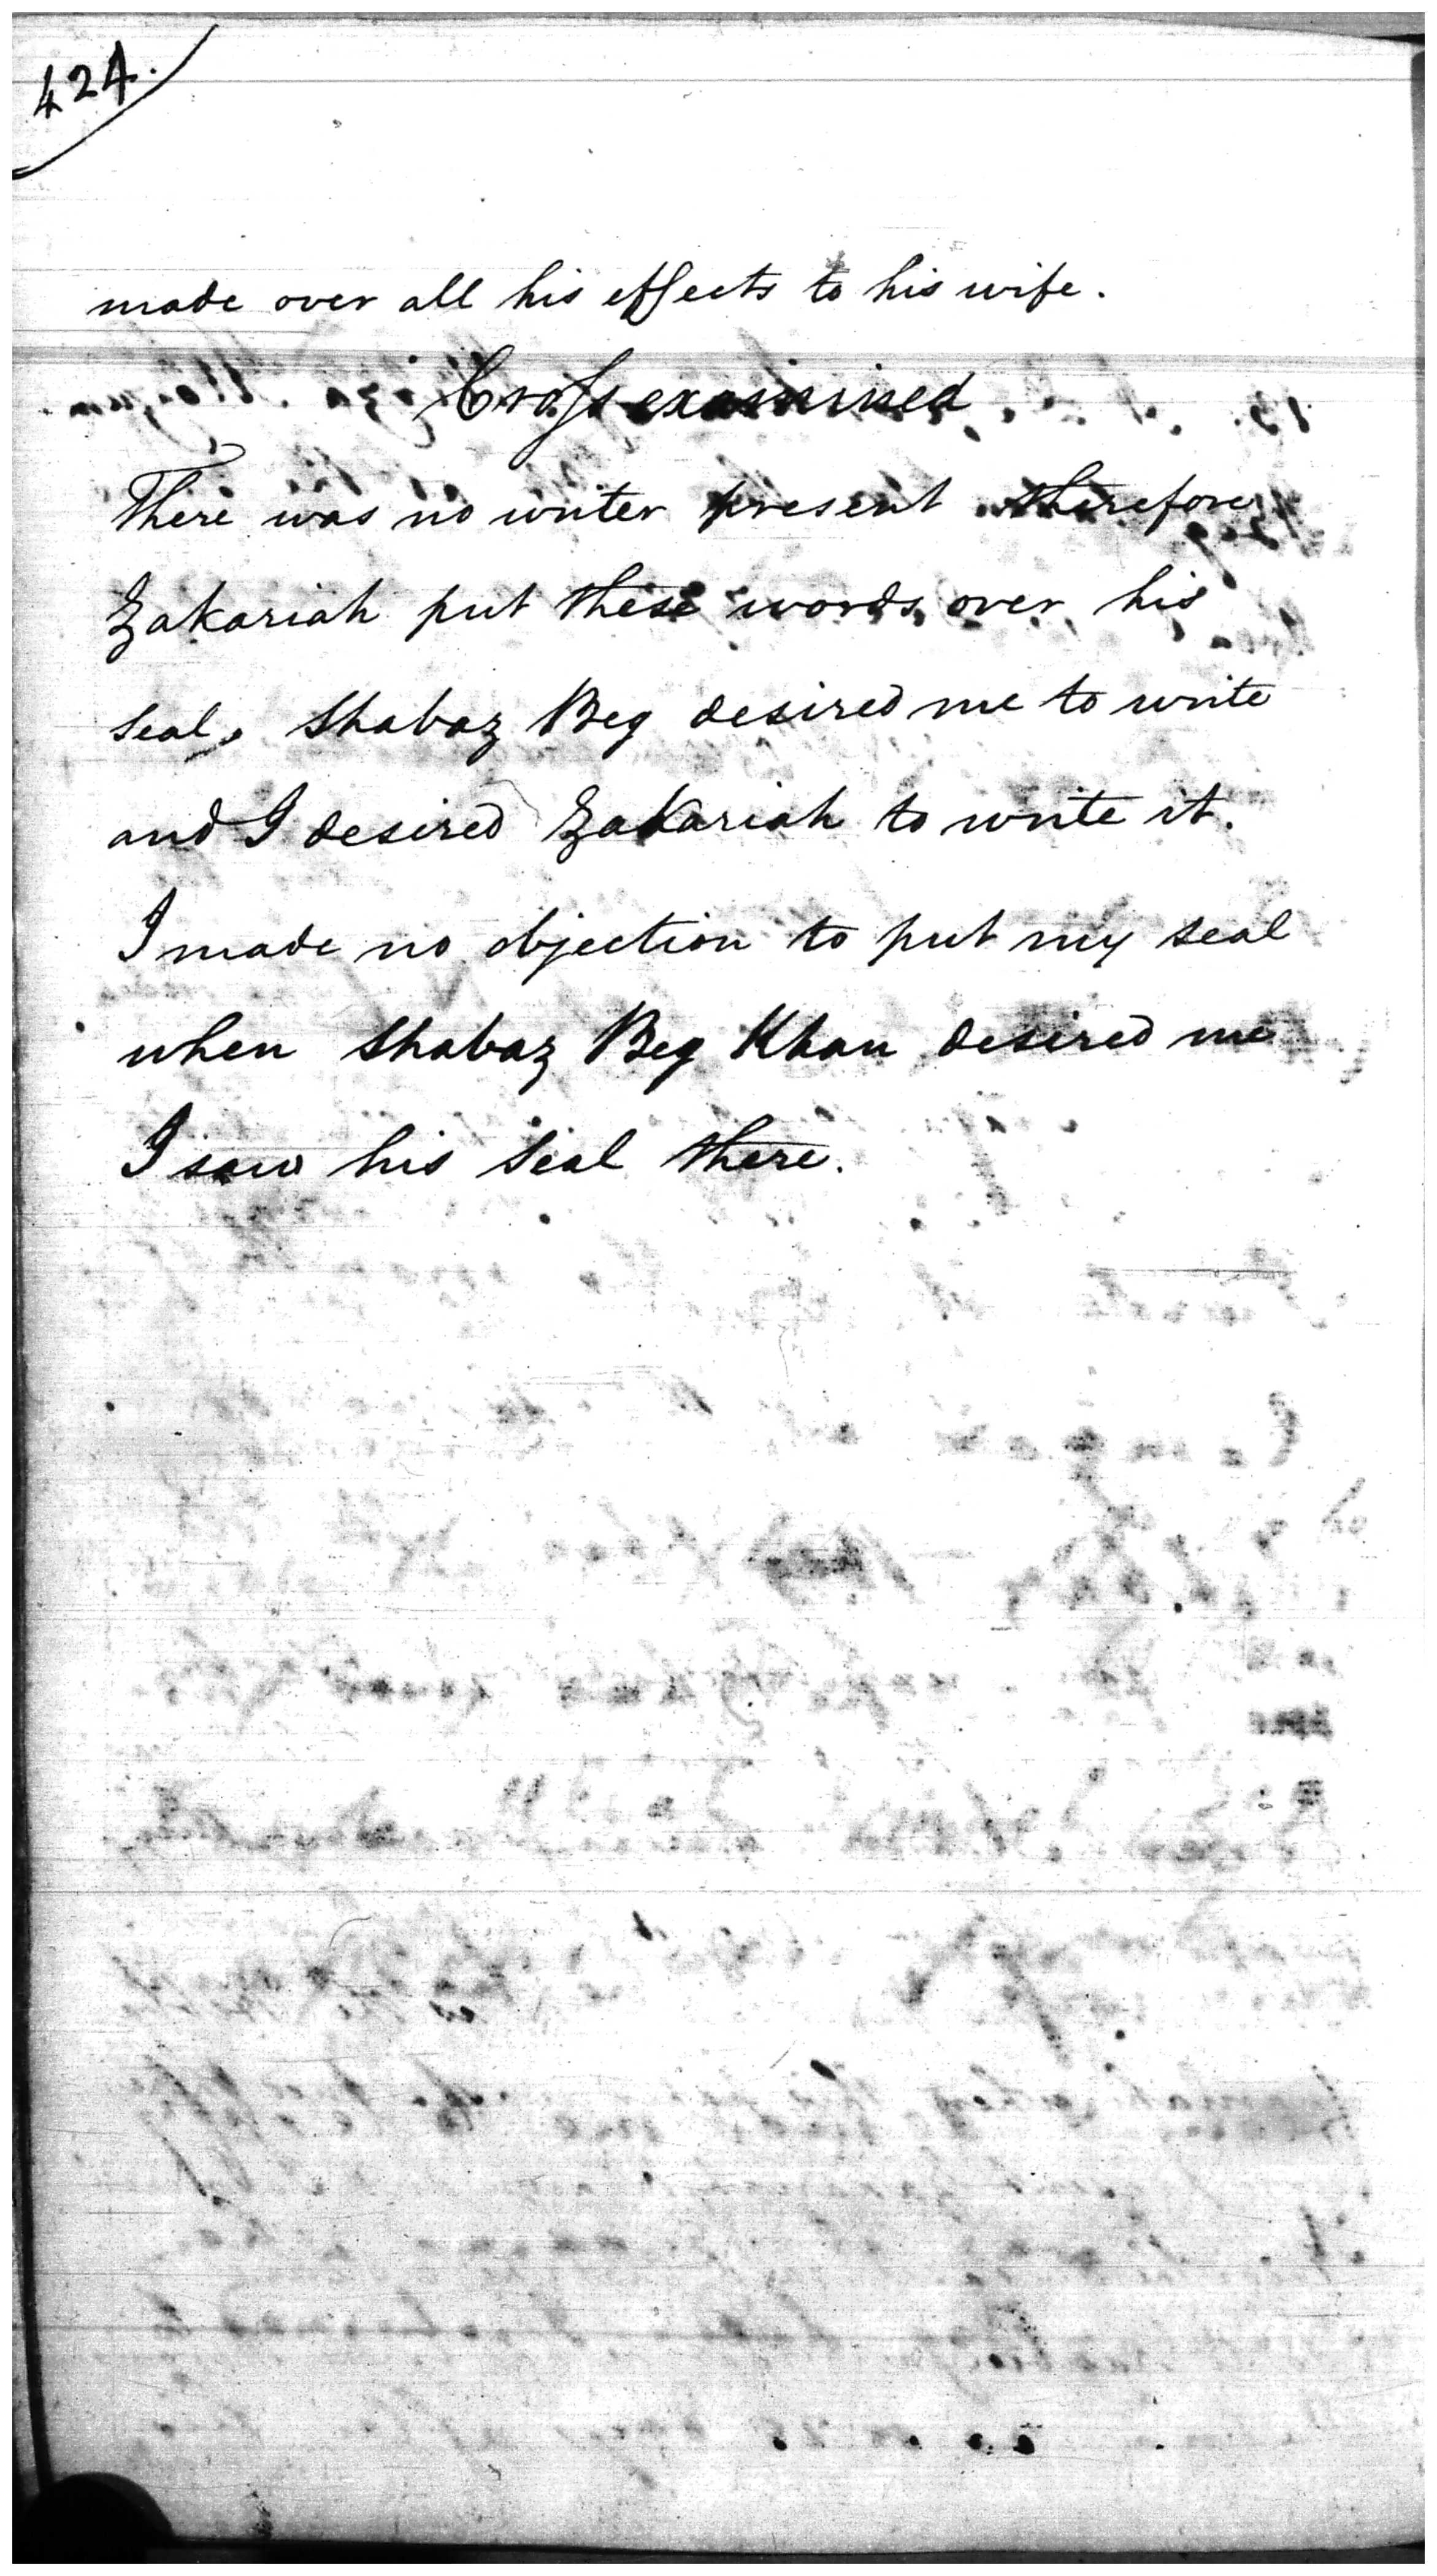 424.
made over all his effects to his wife.
Cross examined
There was no writer present therefore
Zakariah put these words over his
seal. Shabaz Beg desired me to write
and I desired Zakariah to write it.
I made no objection to put my seal
when Shabaz Beg Khan desired me
I saw his Seal there.